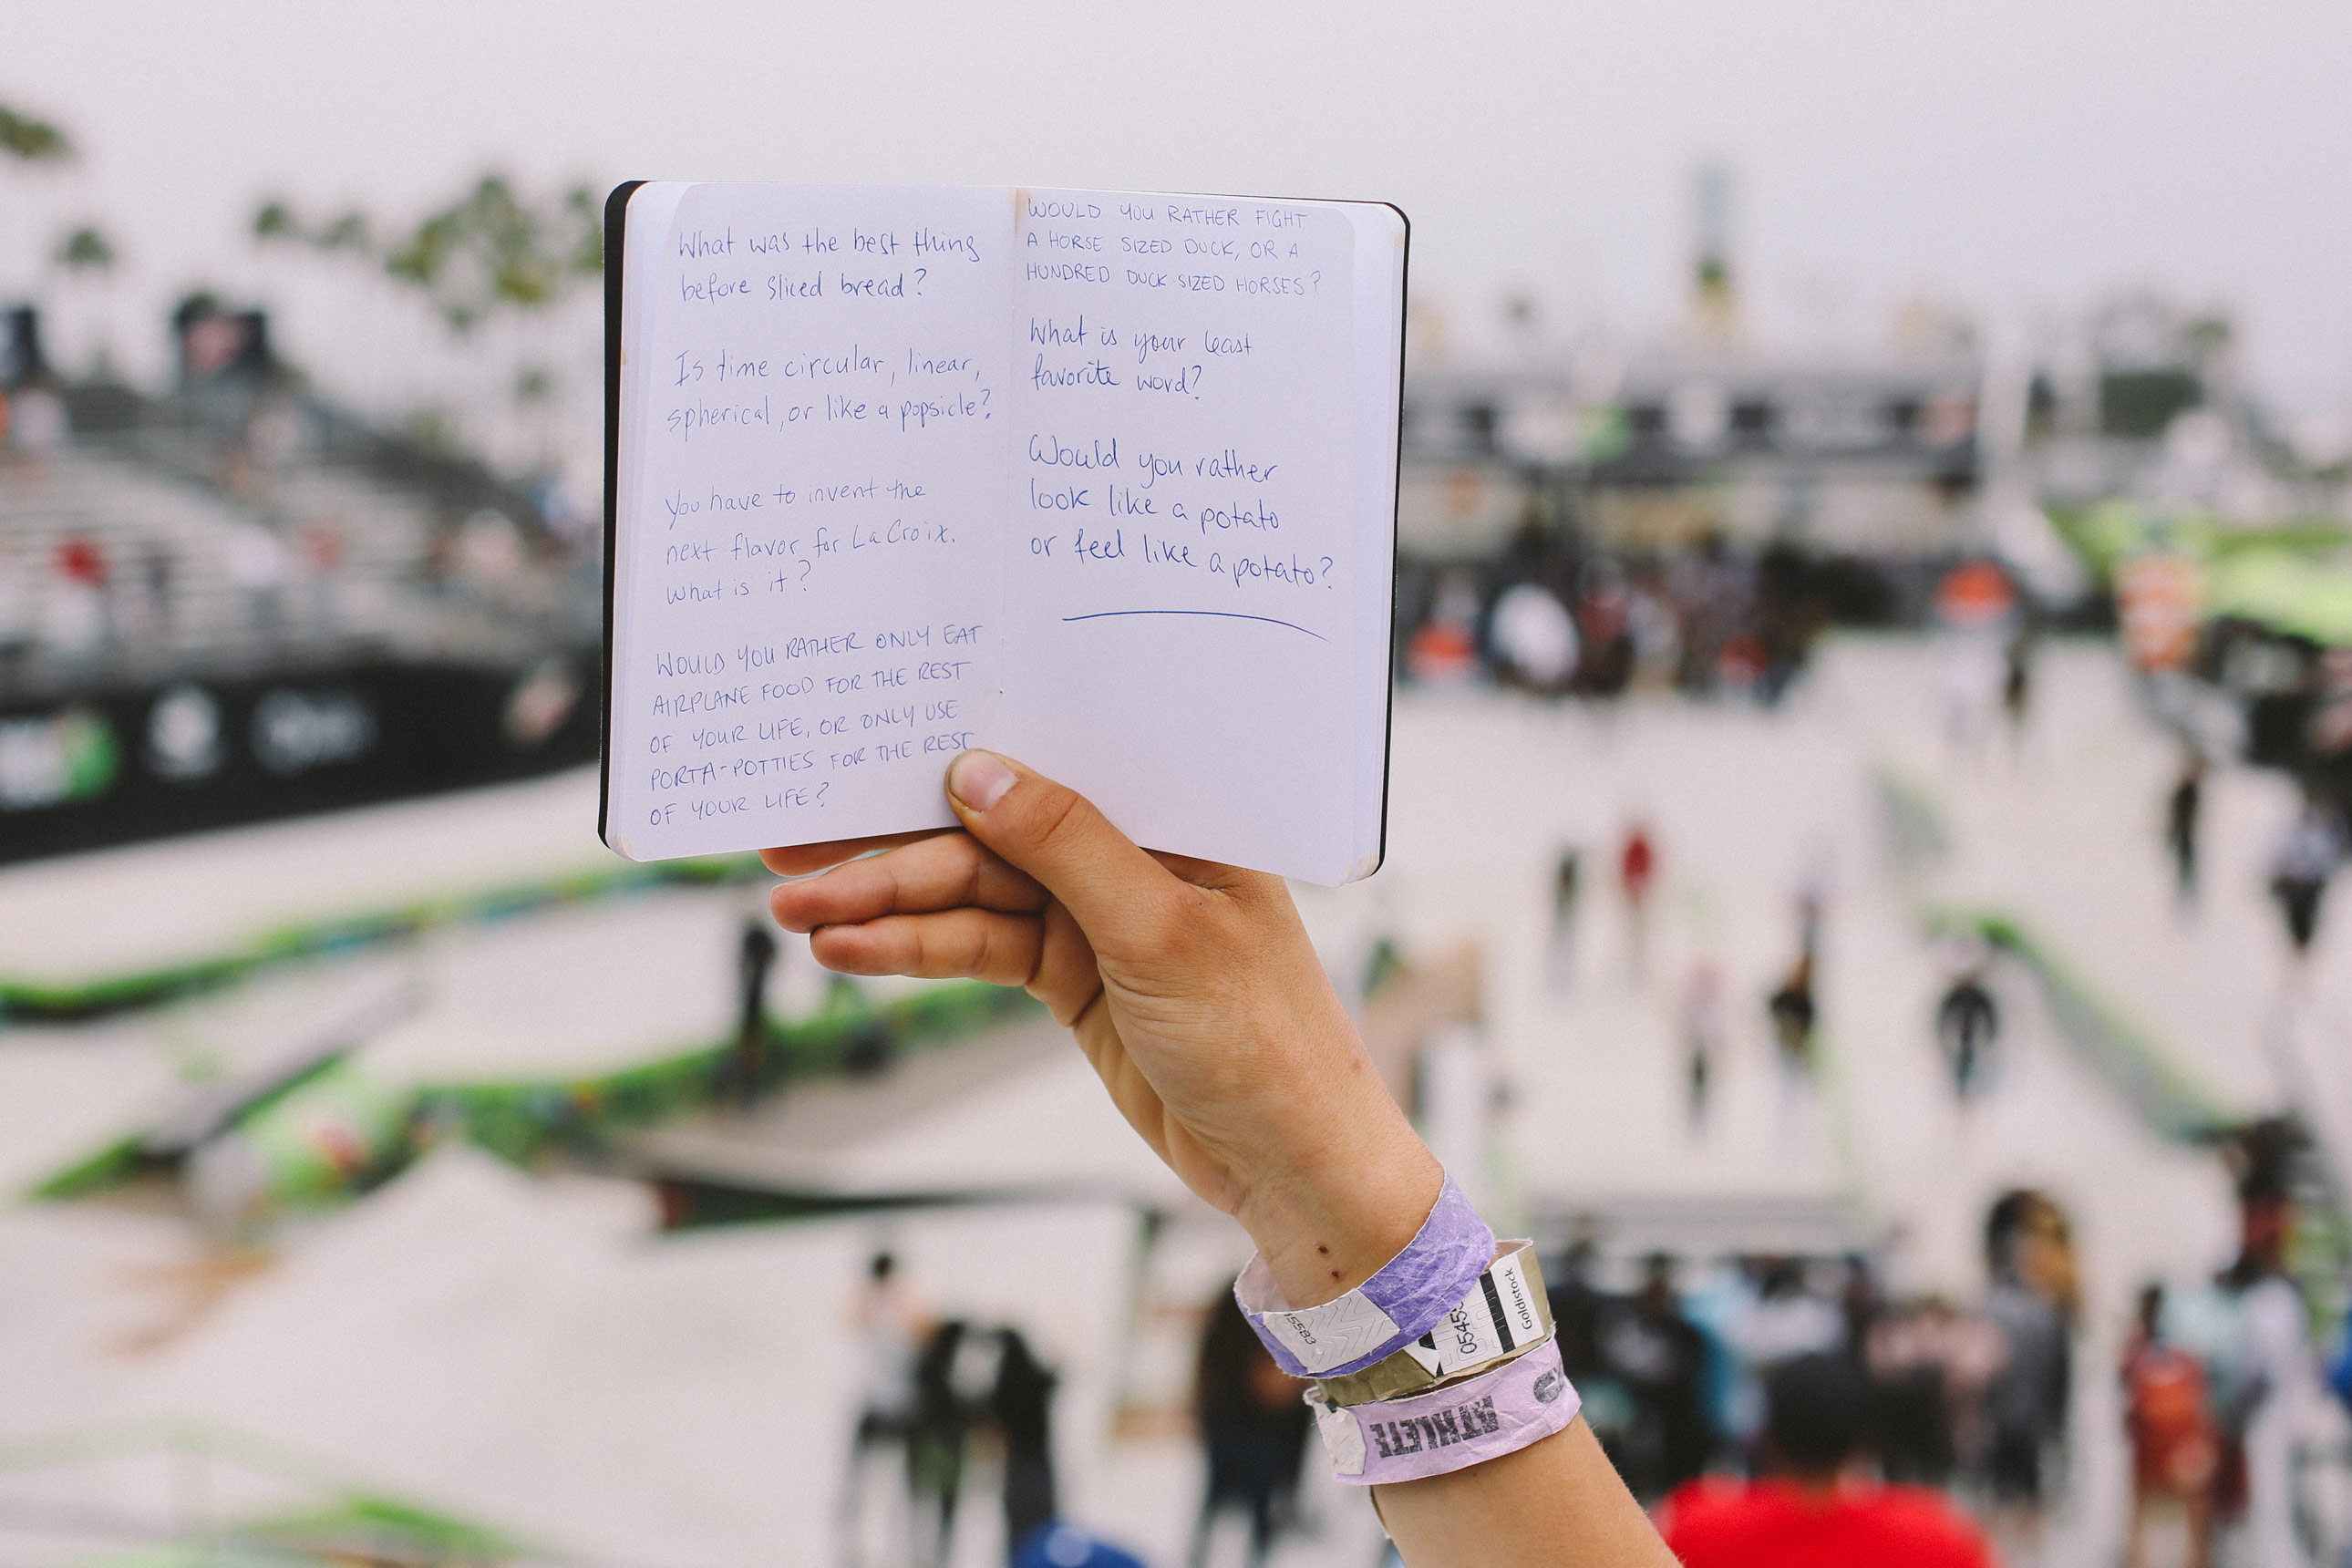 What was the best thing
before sliced bread?
Is time circular, linear,
spherical, or like a popsicle?
You have to invent the
next flavor for LaCroix.
What is it?
WOULD YOU RATHER ONLY EAT
AIRPLANE FOOD FOR THE REST
OF YOUR LIFE, OR ONLY USE
PORTA-POTTIES FOR THE REST
OF YOUR LIFE?
WOULD YOU RATHER FIGHT
A HORSE SIZED DUCK, OR A
HUNDRED DUCK SIZED HORSES?
What is your least
favorite word?
Would you rather
look like a potato
or feel like a potato?
Goldistock
ATHLETE